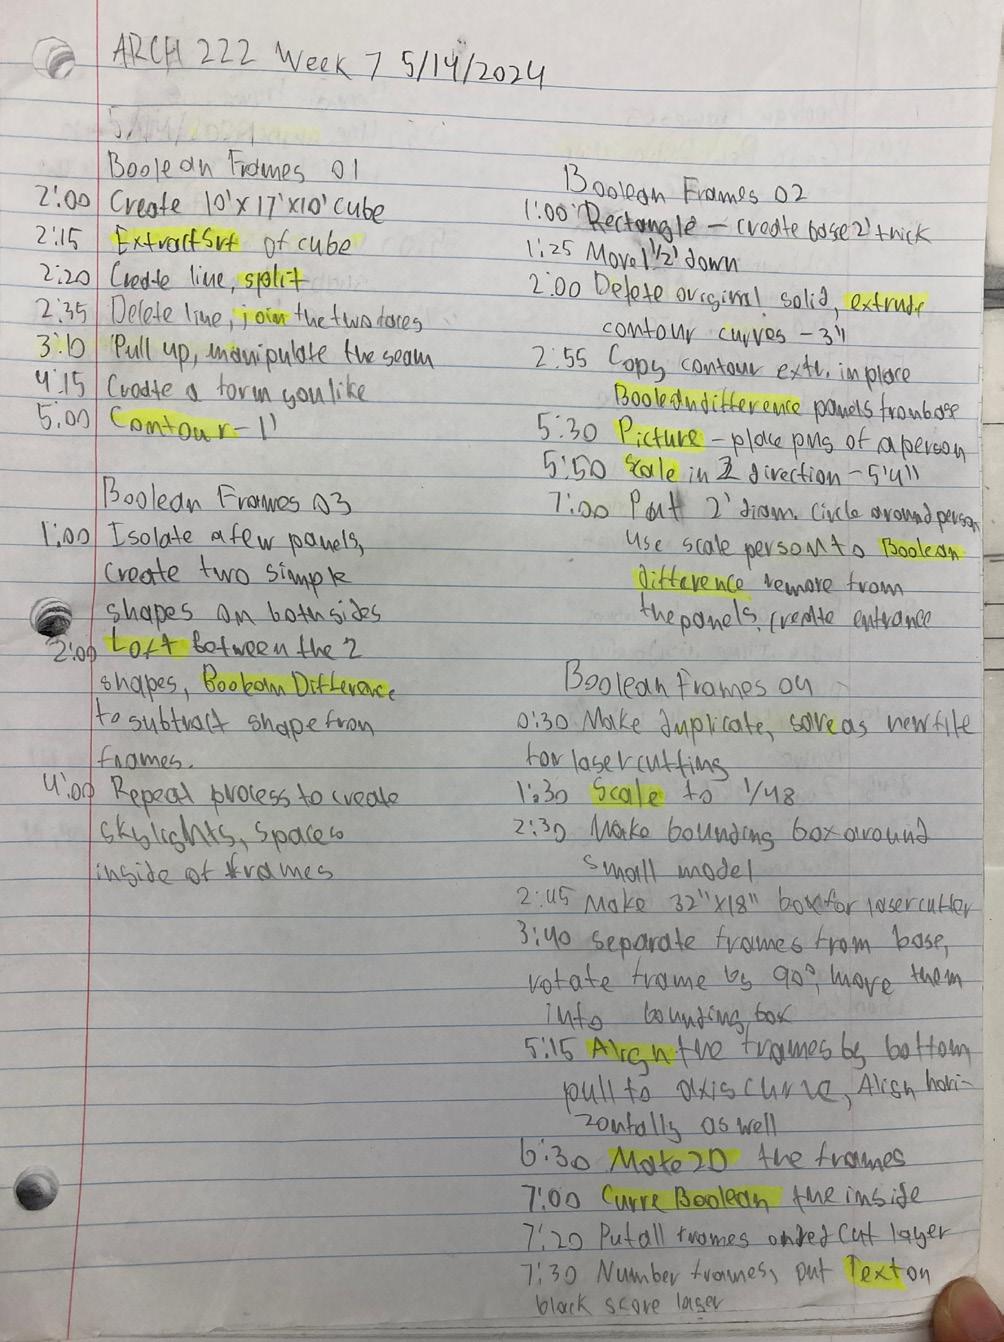 ARCH 222 Week 7 5/14/2024
Boolean Frames 01
2:00 Create 10'x17'x10' cube
2:15 ExtractSrf of cube
2:20 Create line, split
2:35 Delete line, join the two faces
3:10 Pull up, manipulate the seam
4:15 Create a form you like
5:00 Contour - 1'
Boolean Frames 03
1:00 Isolate a few panels,
create two simple
shapes on both sides
2:00 Loft between the 2
shapes, Boolean Difference
to subtract shape from
frames.
4:00 Repeat process to create
skylights, spaces
inside of frames
Boolean Frames 02
1:00 Rectangle - create base 2' thick
1:25 Move 1 1/2' down
2:00 Delete original solid, extrude
contour curves - 3"
2:55 Copy contour extr. in place
Booleandifference panels from base
5:30 Picture - place png of a person
5:50 Scale in Z direction - 5'4"
7:00 Put 2' diam. circle around person
use scale person to Boolean
difference remove from
the panels, create entrance
Boolean Frames 04
0:30 Make duplicate, save as new file
for laser cutting
1:30 Scale to 1/48
2:30 Make bounding box around
small model
2:45 Make 32"x18" box for laser cutter
3:40 separate frames from base,
rotate frame by 90°, move them
into bounding box
5:15 Align the frames by bottom
pull to axis curve, Align hori-
zontally as well
6:30 Make2D the frames
7:00 Curve Boolean the inside
7:20 Put all frames on red cut layer
7:30 Number frames, put Text on
black score laser